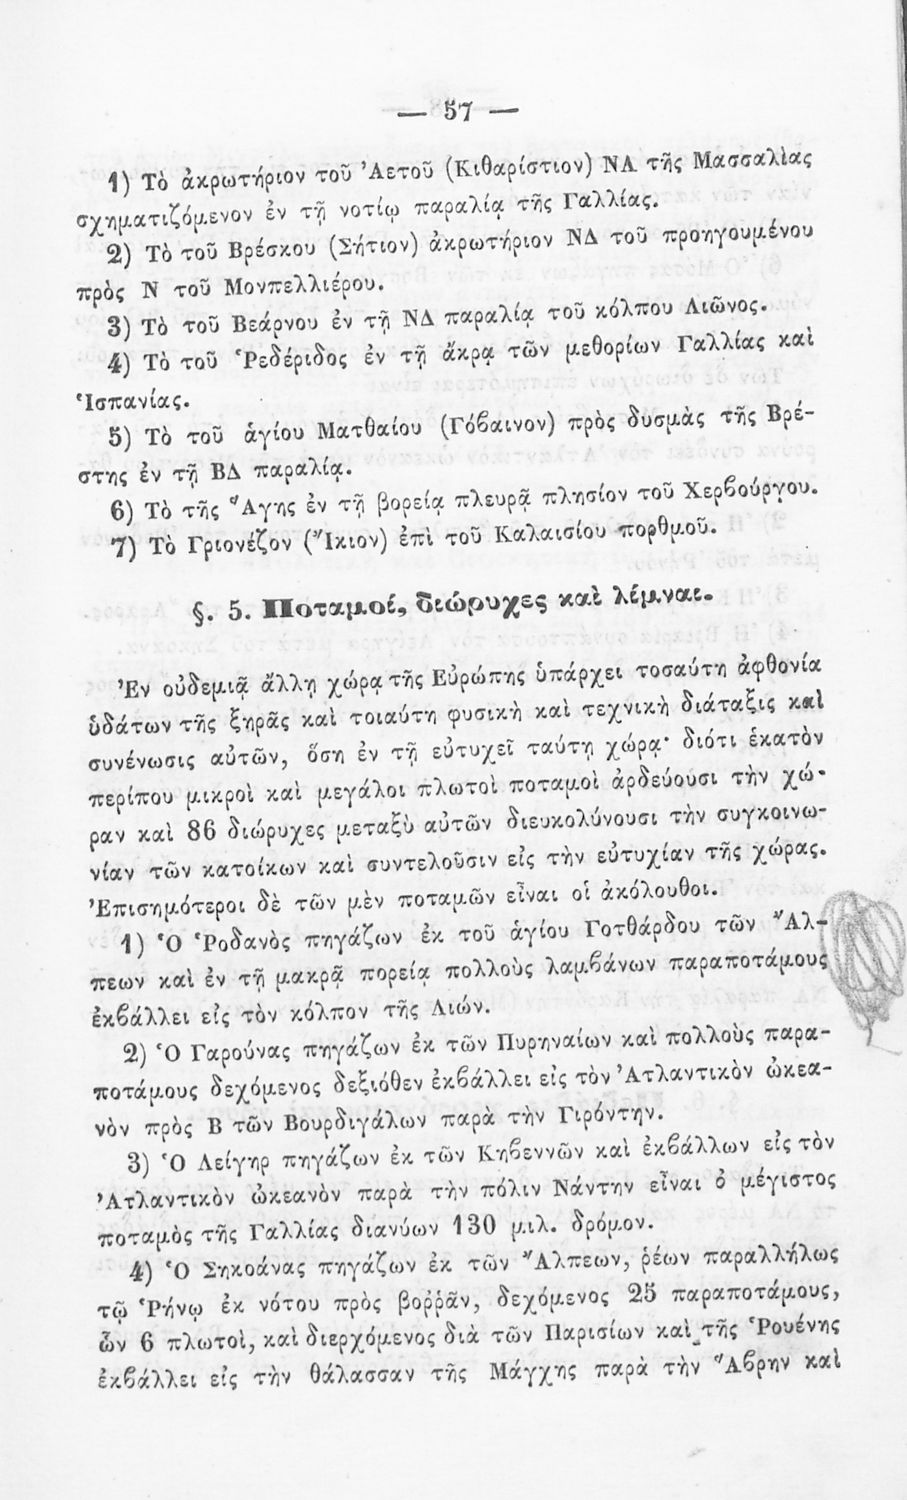 — 57 —
1) Τὸ ἀκρωτήριον τοῦ Ἀετοῦ (Κιθαρίστιον) ΝΑ τῆς Μασσαλίας
σχηματιζόμενον ἐν τῇ νοτίῳ παραλίᾳ τῆς Γαλλίας.
2) Τὸ τοῦ Βρέσκου (Σήτιον) ἀκρωτήριον ΝΔ τοῦ προηγουμένου
πρὸς Ν τοῦ Μονπελλιέρου.
3) Τὸ τοῦ Βεάρνου ἐν τῇ ΝΔ παραλίᾳ τοῦ κόλπου Λιῶνος.
4) Τὸ τοῦ Ῥεδέριδος ἐν τῇ ἄκρᾳ τῶν μεθορίων Γαλλίας καὶ
Ἱσπανίας.
5) Τὸ τοῦ ἁγίου Ματθαίου (Γόβαινον) πρὸς δυσμὰς τῆς Βρέ-
στης ἐν τῇ ΒΔ παραλίᾳ.
6) Τὸ τῆς Ἅγης ἐν τῇ βορείᾳ πλευρᾷ πλησίον τοῦ Χερβούργου.
7) Τὸ Γριονέζον (Ἴκιον) ἐπὶ τοῦ Καλαισίου πορθμοῦ.
§. 5. Ποταμοί, διώρυχες καὶ λίμναι.
Ἐν οὐδεμιᾷ ἄλλῃ χώρᾳ τῆς Εὐρώπης ὑπάρχει τοσαύτη ἀφθονία
ὑδάτων τῆς ξηρᾶς καὶ τοιαύτη φυσικὴ καὶ τεχνικὴ διάταξις καὶ
συνένωσις αὐτῶν, ὅση ἐν τῇ εὐτυχεῖ ταύτῃ χώρᾳ· διότι ἑκατὸν
περίπου μικροὶ καὶ μεγάλοι πλωτοὶ ποταμοὶ ἀρδεύουσι τὴν χώ-
ραν καὶ 86 διώρυχες μεταξὺ αὐτῶν διευκολύνουσι τὴν συγκοινω-
νίαν τῶν κατοίκων καὶ συντελοῦσιν εἰς τὴν εὐτυχίαν τῆς χώρας.
Ἐπισημότεροι δὲ τῶν μὲν ποταμῶν εἶναι οἱ ἀκόλουθοι.
1) Ὁ Ῥοδανὸς πηγάζων ἐκ τοῦ ἁγίου Γοτθάρδου τῶν Ἄλ-
πεων καὶ ἐν τῇ μακρᾷ πορείᾳ πολλοὺς λαμβάνων παραποτάμους
ἐκβάλλει εἰς τὸν κόλπον τῆς Λιών.
2) Ὁ Γαρούνας πηγάζων ἐκ τῶν Πυρηναίων καὶ πολλοὺς παρα-
ποτάμους δεχόμενος δεξιόθεν ἐκβάλλει εἰς τὸν Ἀτλαντικὸν ὠκεα-
νὸν πρὸς Β τῶν Βουρδιγάλων παρὰ τὴν Γιρόντην.
3) Ὁ Λείγηρ πηγάζων ἐκ τῶν Κηβεννῶν καὶ ἐκβάλλων εἰς τὸν
Ἀτλαντικὸν ὠκεανὸν παρὰ τὴν πόλιν Νάντην εἶναι ὁ μέγιστος
ποταμὸς τῆς Γαλλίας διανύων 130 μιλ. δρόμον.
4) Ὁ Σηκοάνας πηγάζων ἐκ τῶν Ἄλπεων, ῥέων παραλλήλως
τῷ Ῥήνῳ ἐκ νότου πρὸς βοῤῥᾶν, δεχόμενος 25 παραποτάμους,
ὧν 6 πλωτοὶ, καὶ διερχόμενος διὰ τῶν Παρισίων καὶ τῆς Ῥουένης
ἐκβάλλει εἰς τὴν θάλασσαν τῆς Μάγχης παρὰ τὴν Ἅβρην καὶ